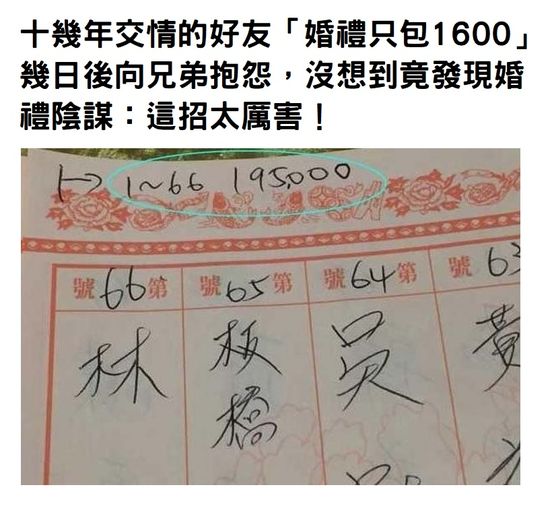 十幾年交情的好友「婚禮只包1600」
幾日後向兄弟抱怨，沒想到竟發現婚
禮陰謀：這招太厲害！
1~66 195,000
號66第 號65第 號64第 號63
林 板橋 吳 黃